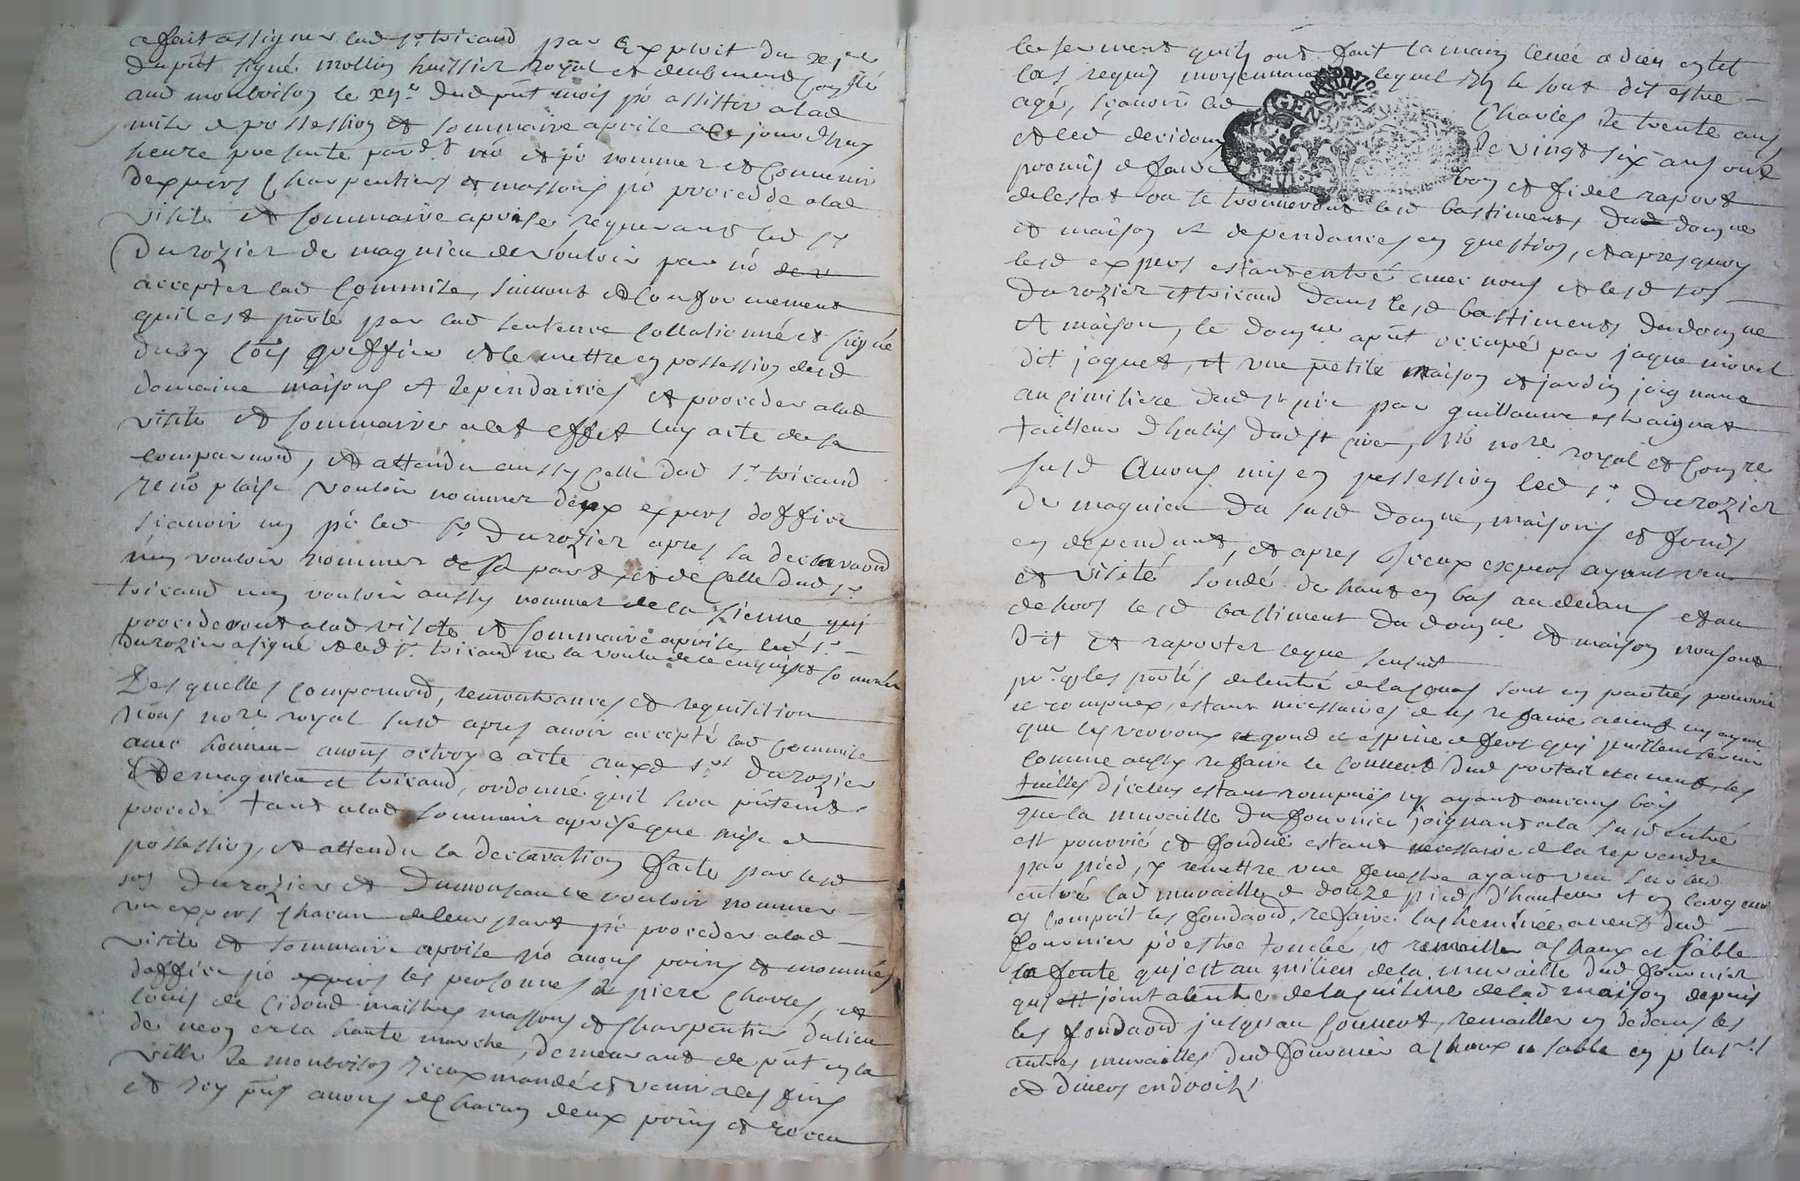 a fait assigner led sr triraud par exploit du xe jer
du pnt signé mollin huissier royal et deubment
aud montbrison le xije dud pnt mois pr assister alad
mise de possession et sommaire aprise a ce jourdhuy
heure presente pard. nos et pr nommer et convenir
dexpers charpentiers et massons pr procedde alad
visite et sommaire aprise requerant led sr
Durozier de magnieu de vouloir par nos
accepter lad commise, suivant et conformement
quil est porté par lad sentence collationné et signé
greffier et le mettre en possession desd
domaine maisons et dependances et proceder alad
visite et sommaire a cet effet luy acte de sa
comparaond, et attendu aussy celle dud sr triraud
nos plaise vouloir nommer deux expers doffice
sçauoir un pr led sr Durozier apres la declaraond
ney vouloir nommer de sa part et de celle dud sr
triraud ney vouloir aussy nommer de la sienne qui
procederont alad visite et sommaire aprise led sr
Durozier a signé et led sr triraud ne la voulu de ce enquis et sommé
Desquelles comparaond, remontrances et requisition
Nous nore royal susd apres auoir accepté lad commise
auec honneur auons octroyé acte auxd srs Durozier
de magnieu et triraud, ordonné quil sera pntement
procédé tant alad sommaire aprise que mise de
possession, et attendu la declaration faite par lesd
srs Durozier et ne vouloir nommer
un expers chacun de leur part pr proceder alad
visite et sommaire aprise nos auons prins et nommés
doffice pr expers les personnes de piere charles, et
louis de cidoud maistres massons et charpentier du lieu
de en la haute marche, demeurant de pnt en la
ville de montbrison iceux mandé et venir a ces fins
et diceux pris auons de chacun deux prins et receu
le serment quils ont fait la main leuée a dieu en tel
cas requis moyennant lequel ils se sont dit estre
agé, sçauoir led Charles de trente ans
et led decidoud de vingt six ans ont
promis de faire bon et fidel raport
de lestat ou se trouueront lesd bastiments dud domne
et maison et dependances en question, et apres quoy
lesd expers estant entré auec nous et lesd srs
Durozier et triraud dans lesd bastiments du domne
et maison, le domne apnt occupé par jaque
dit jaquet, et une petite maison et jardin joignant
au cimitiere dud st par guillaume
tailleur dhabis dud st, nos nore royal et comre
susd Auons mis en possession led sr Durozier
de magnieu du susd domne, maisons et fonds
en dependant, et apres iceux expers ayant veu
et visité sondé de haut en bas au dedans et au
dehors lesd bastiment du domne et maison nous ont
dit et raporter ce que sensuit
pr. q les portes de lentré de la cour sont en parties pourrie
et rompues, estant necessaires de les refaire a neuf
que les verroux gond et espine de fert
comme aussy refaire le couuert dud portail a neuf, les
tuilles diceluy estant rompues ny ayant aucuns bois
que la muraille du fournier joignant a la susd entré
est pourrie et fondue estant necessaire de la reprendre
par pied, y remettre une fenestre ayant
lad muraille de douze pieds dhauteur et en largeur
y compris les fondaond, refaire la cheminée a neuf dud
fournier pr estre tombée et remailler a chaux et sable
la fente qui est au milieu de la muraille dud fournier
qui est joint a lentré de la cuisine de lad maison depuis
les fondaond jusquau couuert, remailler en dedans les
autres murailles dud fournier a chaux et sable en plusrs
et diuers endroits